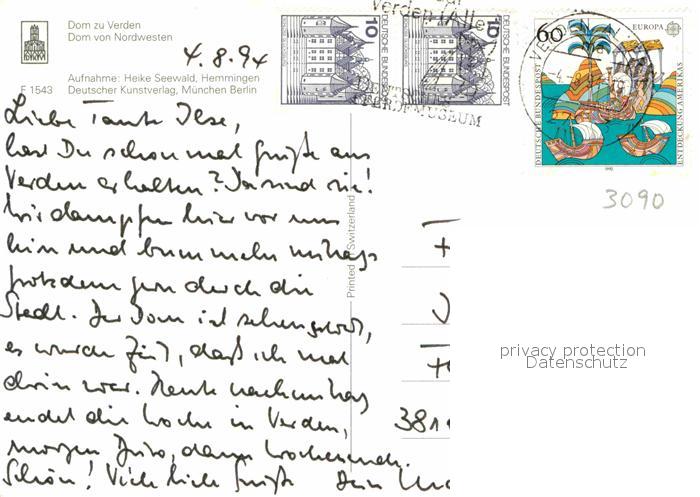 Dom zu Verden
Dom von Nordwesten
4.8.94
Aufnahme: Heike Seewald, Hemmingen
F 1543 Deutscher Kunstverlag, München Berlin
Liebe Tante Ilse,
hast Du schon mal Grüße aus
Verden erhalten? Da sind sie!
Wir dampfen hier vor uns
hin und bummeln mittags
trotzdem gern durch die
Stadt. Der Dom ist sehenswert,
es wurde Zeit, daß ich mal
drin war. Heute nachmittag
endet die Woche in Verden,
morgen Büro, dann Wochenende.
Schön! Viele liebe Grüße Dein
Printed in Switzerland
Verden (Aller)
DEUTSCHES
PFERDEMUSEUM
10
DEUTSCHE BUNDESPOST
10
DEUTSCHE BUNDESPOST
VERDEN
60
EUROPA
DEUTSCHE BUNDESPOST
ENTDECKUNG AMERIKAS
1992
3090
381
privacy protection
Datenschutz